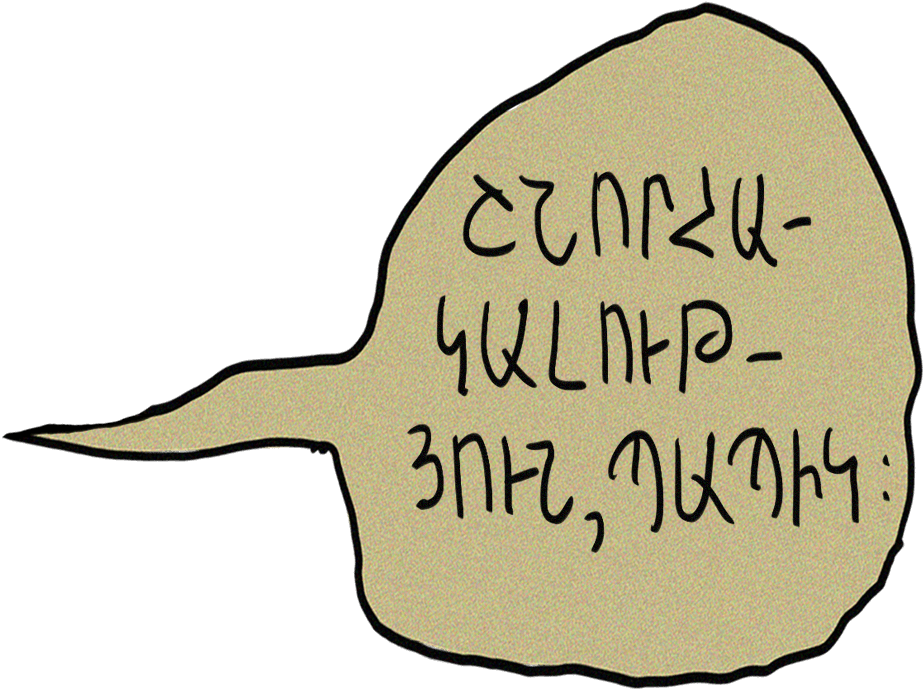 ՇՆՈՐՀԱ-
ԿԱԼՈՒԹ-
ՅՈՒՆ, ՊԱՊԻԿ։